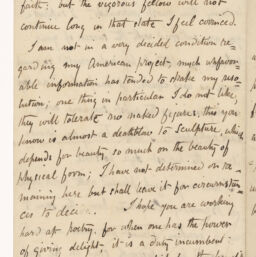 faith: but the vigorous fellow will not
continue long in that state I feel convinced.
I am not in a very decided condition re-
garding my American project, much unfavor-
able information has tended to shake my reso-
lution; one thing in particular I do not like,
they will tolerate no naked figures, this you
know is almost a deathblow to Sculpture, which
depends for beauty so much on the beauty of
physical form; I have not determined on re-
maining here but shall leave it for circumstan-
ces to deci
I hope you are working
hard at poetry, for when one has the power
of giving delight it is a duty incumbent